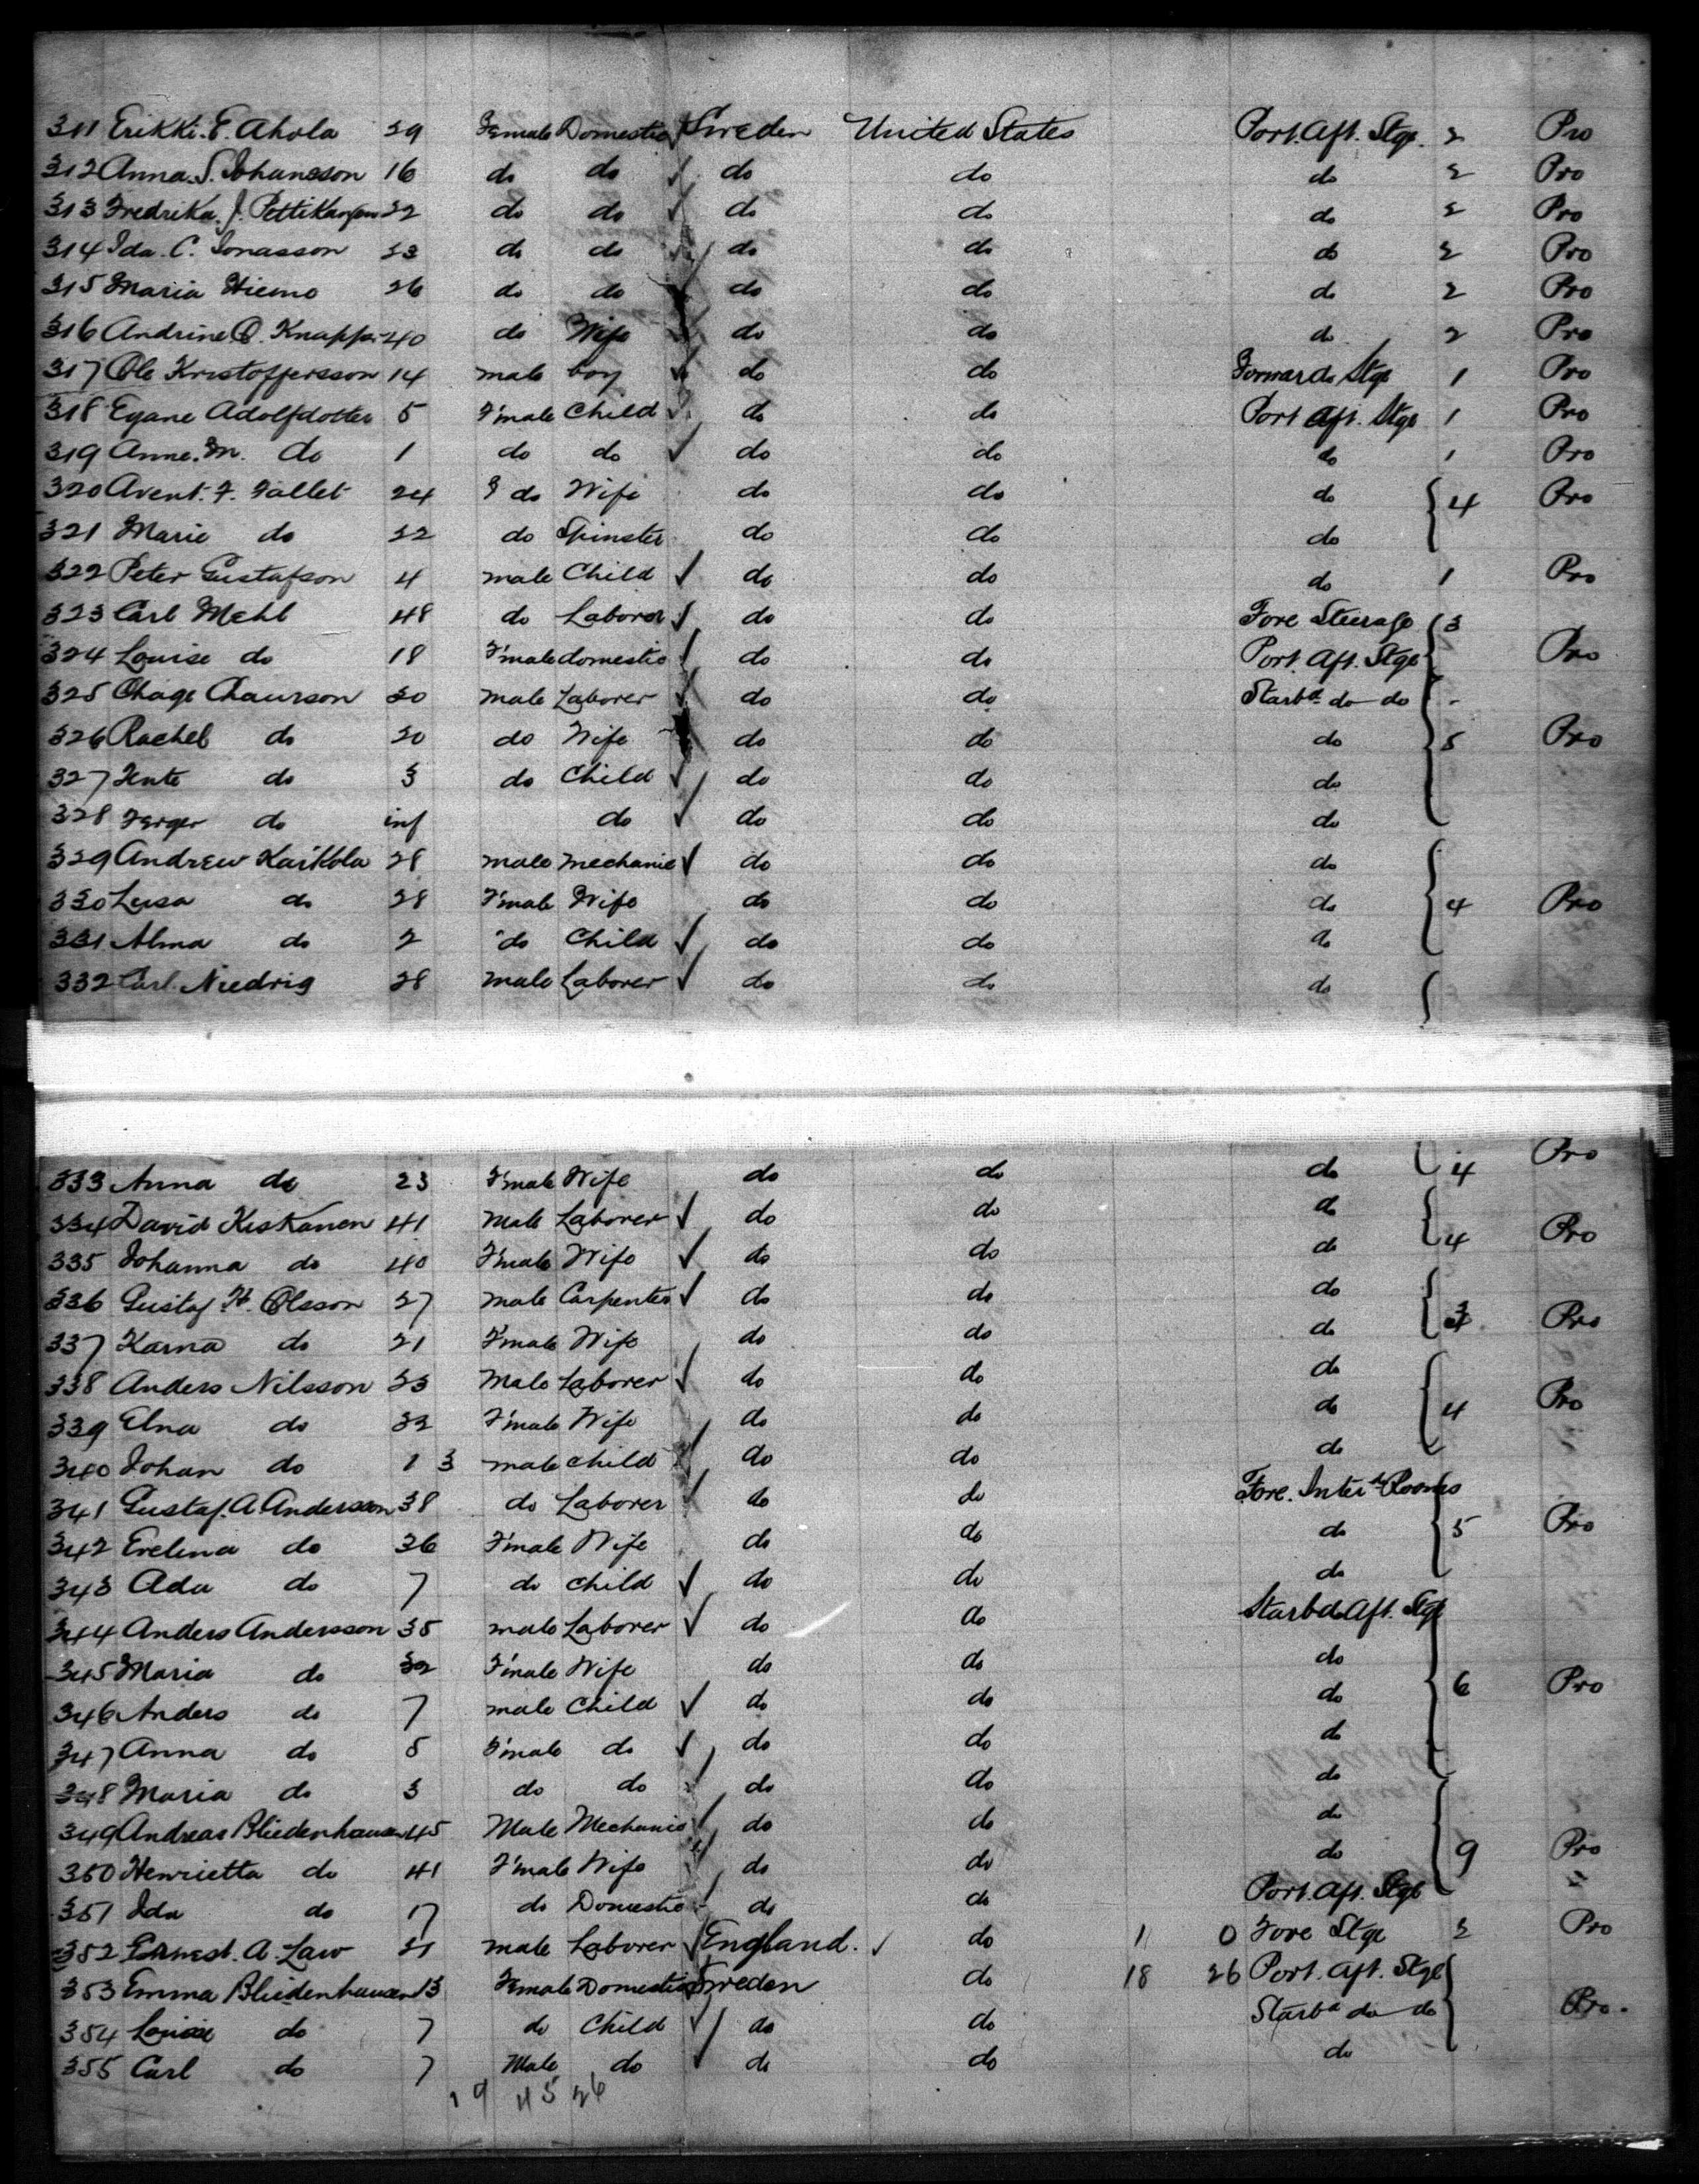 311 Erikki. E. Ahola 29 Female Domestic Sweden United States Port. Aft. Stge. 2 Pro
312 Anna. S. Johansson 16 do do ✓ do do do 2 Pro
313 Fredrika. J. 22 do do ✓ do do do 2 Pro
314 Ida. C. Jonasson 23 do do ✓ do do do 2 Pro
315 Maria Hiemo 26 do do do do do 2 Pro
316 Andrine. O. 40 do Wife do do do 2 Pro
317 Ole Kristoffersson 14 male boy ✓ do do Forward Stge 1 Pro
318 Adolfdotter 5 F'male Child ✓ do do Port Aft. Stge 1 Pro
319 Anne. M. do 1 do do ✓ do do do 1 Pro
320 Avent. F. Fallet 24 do Wife do do do 4 Pro
321 Marie do 22 do Spinster do do do
322 Peter Gustafson 4 male Child ✓ do do do 1 Pro
323 Carl Mehl 48 do Laborer ✓ do do Fore Steerage 3
324 Louise do 18 F'male domestic do do Port. Aft. Stge Pro
325 Chaurson 30 male Laborer ✓ do do Starbd do do
326 Rachel do 30 do Wife do do do 5 Pro
327 do 3 do Child ✓ do do do
328 do inf do ✓ do do do
329 Andrew Karkkola 28 male mechanic ✓ do do do
330 Lusa do 28 F'male Wife do do do 4 Pro
331 Alma do 2 do Child ✓ do do do
332 Carl. Niedrig 28 male Laborer ✓ do do do
333 Anna do 23 F'male Wife do do do 4 Pro
334 David Keskanen 41 Male Laborer ✓ do do do
335 Johanna do 40 F'male Wife ✓ do do do 4 Pro
336 Gustaf H. Olsson 27 male Carpenter ✓ do do do
337 Karna do 21 F'male Wife do do do 3 Pro
338 Anders Nilsson 33 Male Laborer ✓ do do do
339 Elna do 32 F'male Wife do do do 4 Pro
340 Johan do 1 3 male child do do do
341 Gustaf. A. Andersson 38 do Laborer do do Fore. Inter Rooms
342 Evelina do 36 F'male Wife do do do 5 Pro
343 Ada do 7 do child ✓ do do do
344 Anders Andersson 35 male Laborer ✓ do do Starbd Aft. Stge
345 Maria do 32 F'male Wife do do do
346 Anders do 7 male Child ✓ do do do 6 Pro
347 Anna do 5 F'male do ✓ do do do
348 Maria do 3 do do do do do
349 Andreas Bliedenhauser 45 Male Mechanic ✓ do do do
350 Henrietta do 41 F'male Wife do do do 9 Pro
351 Ida do 17 do Domestic do do Port. Aft. Stge
352 Ernest. A. Law 21 male Laborer ✓ England. ✓ do 1 0 Fore Stge 2 Pro
353 Emma Bliedenhauser 13 Female Domestic Sweden do 18 26 Port. Aft. Stge
354 Louise do 7 do Child ✓ do do Starbd do do Pro.
355 Carl do 7 Male do ✓ do do do